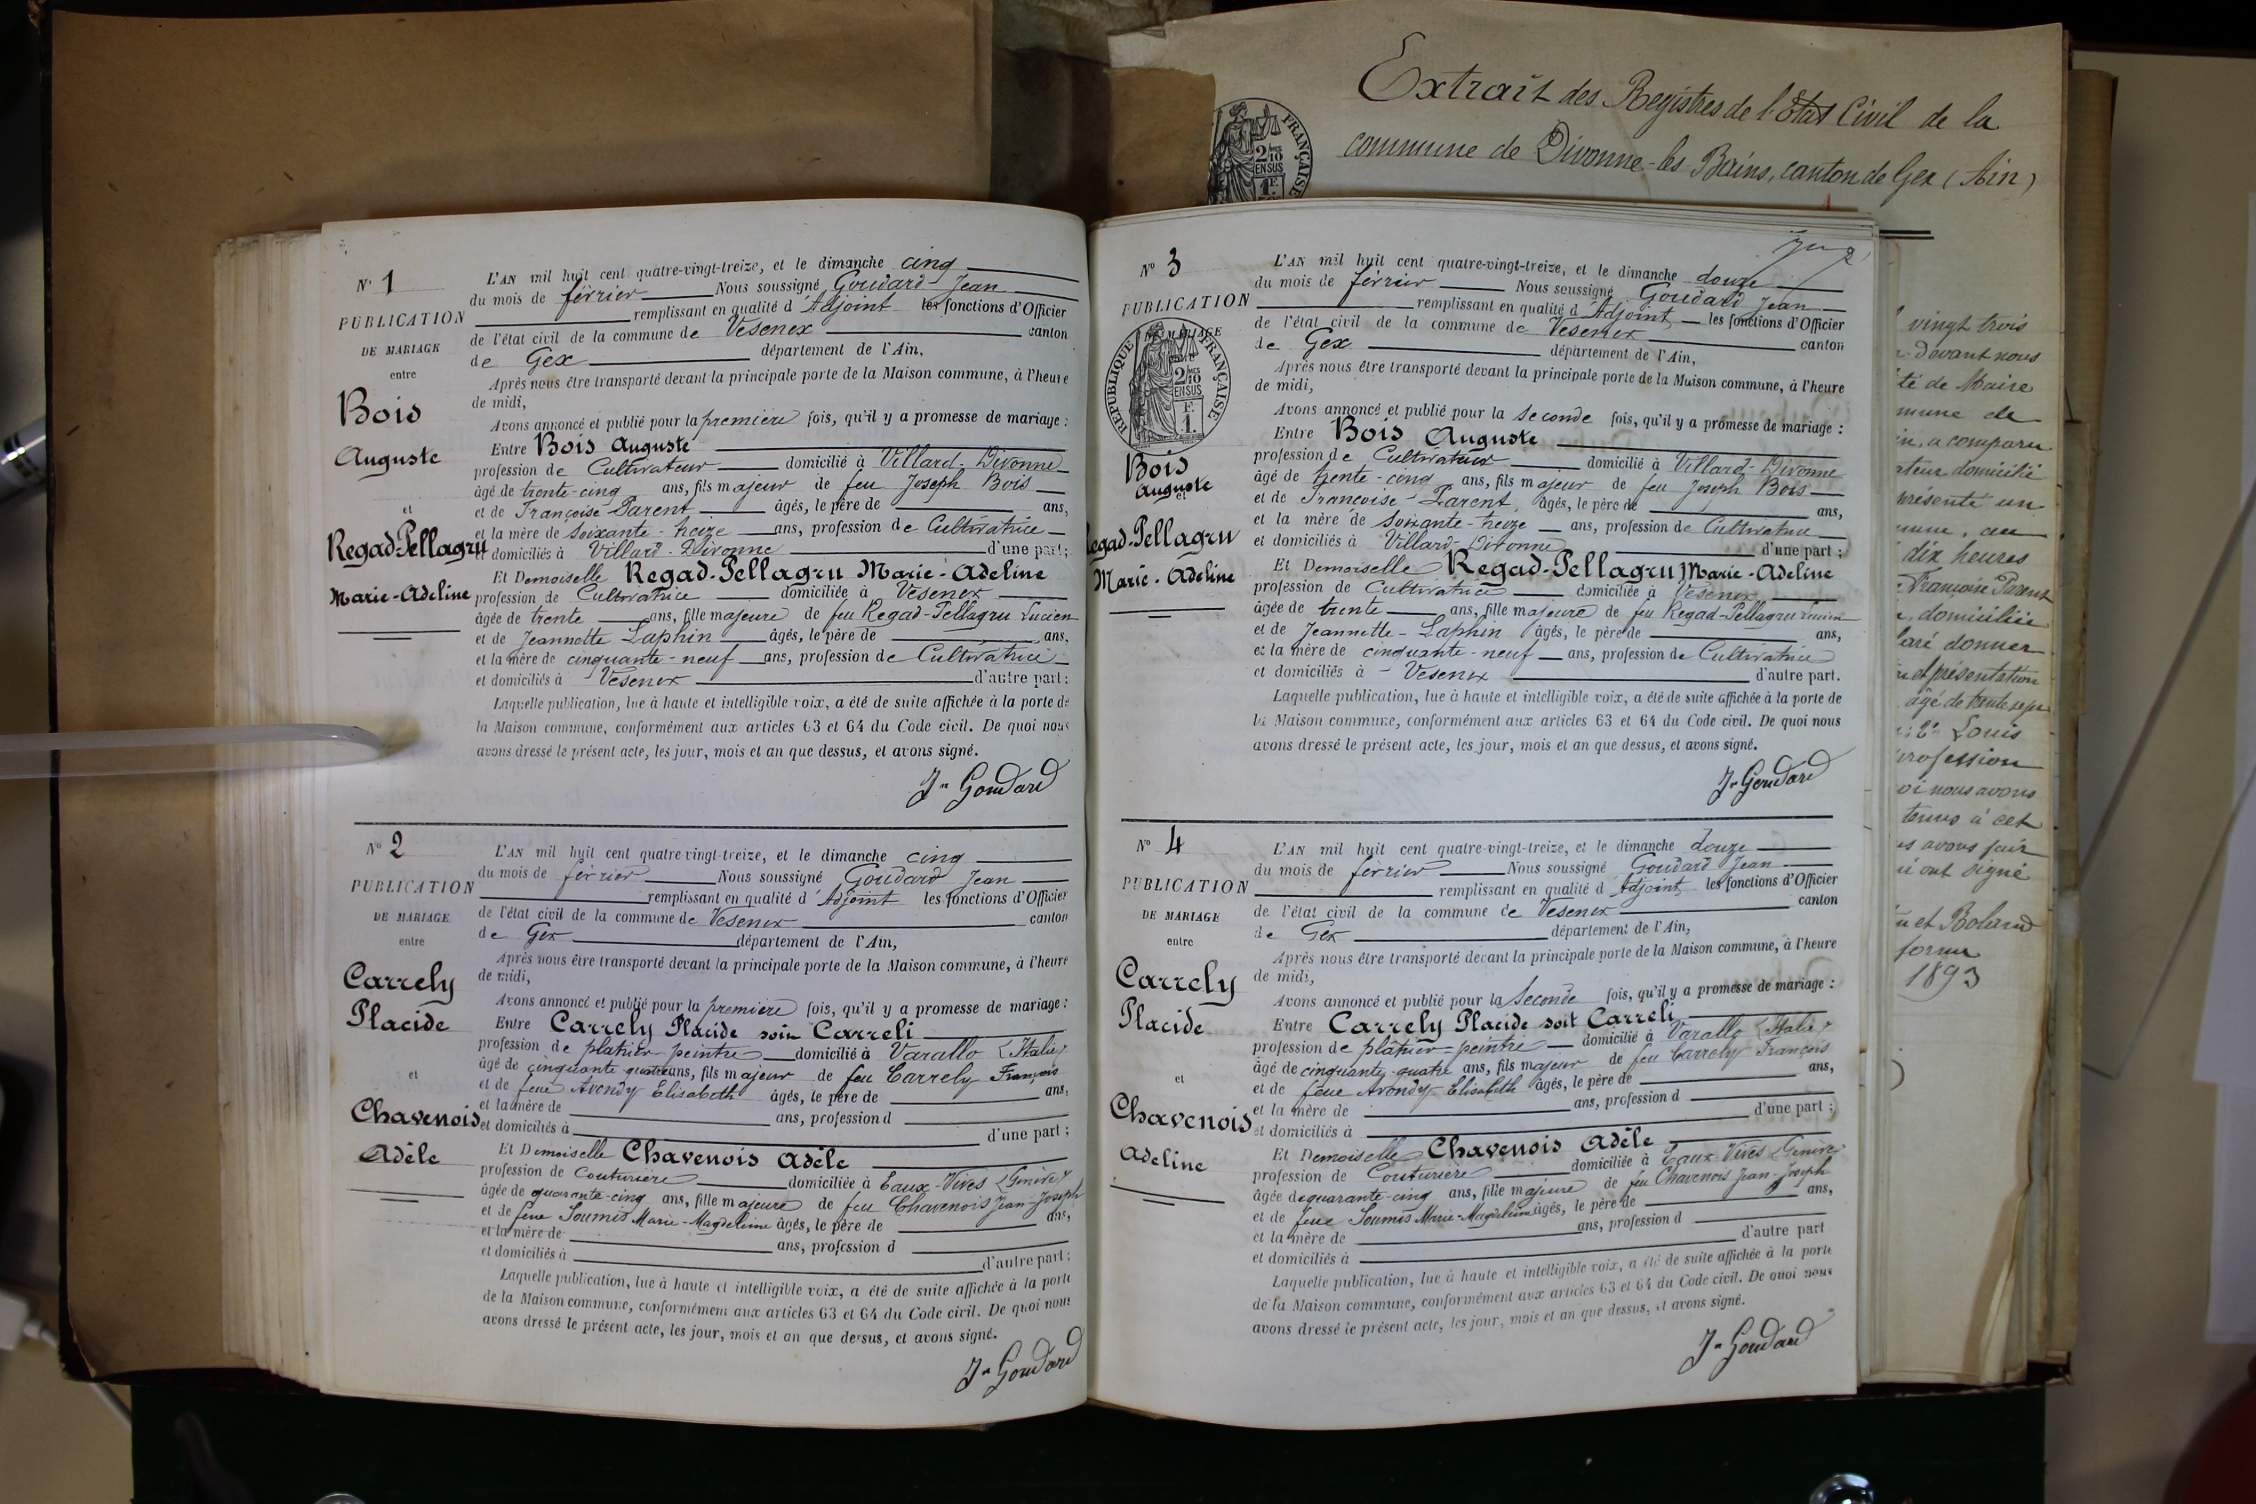 Extrait des Registres de l'Etat Civil de la
commune de Divonne-les-Bains, canton de Gex (Ain)
N° 1
PUBLICATION
DE MARIAGE
entre
Bois
Auguste
et
Regad-Pellagru
Marie-Adeline
L'AN mil huit cent quatre-vingt-treize, et le dimanche cinq
du mois de février Nous soussigné Goudard Jean
remplissant en qualité d'Adjoint les fonctions d'Officier
de l'état civil de la commune de Vesenex canton
de Gex département de l'Ain,
Après nous être transporté devant la principale porte de la Maison commune, à l'heure
de midi,
Avons annoncé et publié pour la première fois, qu'il y a promesse de mariage :
Entre Bois Auguste
profession de Cultivateur domicilié à Villard-Divonne
âgé de trente-cinq ans, fils majeur de feu Joseph Bois
et de Françoise Parent âgés, le père de ans,
et la mère de soixante-treize ans, profession de Cultivatrice
et domiciliés à Villard-Divonne d'une part;
Et Demoiselle Regad-Pellagru Marie-Adeline
profession de Cultivatrice domiciliée à Vesenex
âgée de trente ans, fille majeure de feu Regad-Pellagru Lucien
et de Jeannette Laphin âgés, le père de ans,
et la mère de cinquante-neuf ans, profession de Cultivatrice
et domiciliés à Vesenex d'autre part;
Laquelle publication, lue à haute et intelligible voix, a été de suite affichée à la porte de
la Maison commune, conformément aux articles 63 et 64 du Code civil. De quoi nous
avons dressé le présent acte, les jour, mois et an que dessus, et avons signé.
Jn Goudard
N° 2
PUBLICATION
DE MARIAGE
entre
Carrely
Placide
et
Chavenois
Adèle
L'AN mil huit cent quatre-vingt-treize, et le dimanche cinq
du mois de février Nous soussigné Goudard Jean
remplissant en qualité d'Adjoint les fonctions d'Officier
de l'état civil de la commune de Vesenex canton
de Gex département de l'Ain,
Après nous être transporté devant la principale porte de la Maison commune, à l'heure
de midi,
Avons annoncé et publié pour la première fois, qu'il y a promesse de mariage :
Entre Carrely Placide soit Carreli
profession de plâtrier-peintre domicilié à Varallo (Italie)
âgé de cinquante quatre ans, fils majeur de feu Carrely François
et de feue Avondy Elisabeth âgés, le père de ans,
et la mère de ans, profession d
et domiciliés à d'une part ;
Et Demoiselle Chavenois Adèle
profession de Couturière domiciliée à Eaux-Vives (Genève)
âgée de quarante-cinq ans, fille majeure de feu Chavenois Jean-Joseph
et de feue Soumis Marie-Magdeleine âgés, le père de ans,
et la mère de ans, profession d
et domiciliés à d'autre part ;
Laquelle publication, lue à haute et intelligible voix, a été de suite affichée à la porte
de la Maison commune, conformément aux articles 63 et 64 du Code civil. De quoi nous
avons dressé le présent acte, les jour, mois et an que dessus, et avons signé.
Jn Goudard
N° 3
PUBLICATION
DE MARIAGE
RÉPUBLIQUE FRANÇAISE
2/10 EN SUS
1 F.
Bois
Auguste
et
Regad-Pellagru
Marie-Adeline
L'AN mil huit cent quatre-vingt-treize, et le dimanche douze
du mois de février Nous soussigné Goudard Jean
remplissant en qualité d'Adjoint les fonctions d'Officier
de l'état civil de la commune de Vesenex canton
de Gex département de l'Ain,
Après nous être transporté devant la principale porte de la Maison commune, à l'heure
de midi,
Avons annoncé et publié pour la seconde fois, qu'il y a promesse de mariage :
Entre Bois Auguste
profession de Cultivateur domicilié à Villard-Divonne
âgé de trente-cinq ans, fils majeur de feu Joseph Bois
et de Françoise Parent, âgés, le père de ans,
et la mère de soixante-treize ans, profession de Cultivatrice
et domiciliés à Villard-Divonne d'une part ;
Et Demoiselle Regad-Pellagru Marie-Adeline
profession de Cultivatrice domiciliée à Vesenex
âgée de trente ans, fille majeure de feu Regad-Pellagru Lucien
et de Jeannette-Laphin âgés, le père de ans,
et la mère de cinquante-neuf ans, profession de Cultivatrice
et domiciliés à Vesenex d'autre part.
Laquelle publication, lue à haute et intelligible voix, a été de suite affichée à la porte de
la Maison commune, conformément aux articles 63 et 64 du Code civil. De quoi nous
avons dressé le présent acte, les jour, mois et an que dessus, et avons signé.
Jn Goudard
N° 4
PUBLICATION
DE MARIAGE
entre
Carrely
Placide
et
Chavenois
Adeline
L'AN mil huit cent quatre-vingt-treize, et le dimanche douze
du mois de février Nous soussigné Goudard Jean
remplissant en qualité d'Adjoint les fonctions d'Officier
de l'état civil de la commune de Vesenex canton
de Gex département de l'Ain,
Après nous être transporté devant la principale porte de la Maison commune, à l'heure
de midi,
Avons annoncé et publié pour la seconde fois, qu'il y a promesse de mariage :
Entre Carrely Placide soit Carreli
profession de plâtrier-peintre domicilié à Varallo (Italie)
âgé de cinquante-quatre ans, fils majeur de feu Carrely François
et de feue Avondy Elisabeth âgés, le père de ans,
et la mère de ans, profession d
et domiciliés à d'une part ;
Et Demoiselle Chavenois Adèle
profession de Couturière domiciliée à Eaux-Vives (Genève)
âgée de quarante-cinq ans, fille majeure de feu Chavenois Jean-Joseph
et de feue Soumis Marie-Magdeleine âgés, le père de ans,
et la mère de ans, profession d
et domiciliés à d'autre part
Laquelle publication, lue à haute et intelligible voix, a été de suite affichée à la porte
de la Maison commune, conformément aux articles 63 et 64 du Code civil. De quoi nous
avons dressé le présent acte, les jour, mois et an que dessus, et avons signé.
Jn Goudard
vingt trois
devant nous
té de Maire
mune de
in, a comparu
ateur domicilié
présenté un
mme, au
dix heures
Françoise Parent
domiciliée
laré donner
et présentation
âgé de trente sept
2° Louis
profession
oi nous avons
tenus à cet
us avons fait
ui ont signé
et Boland
forme
1893